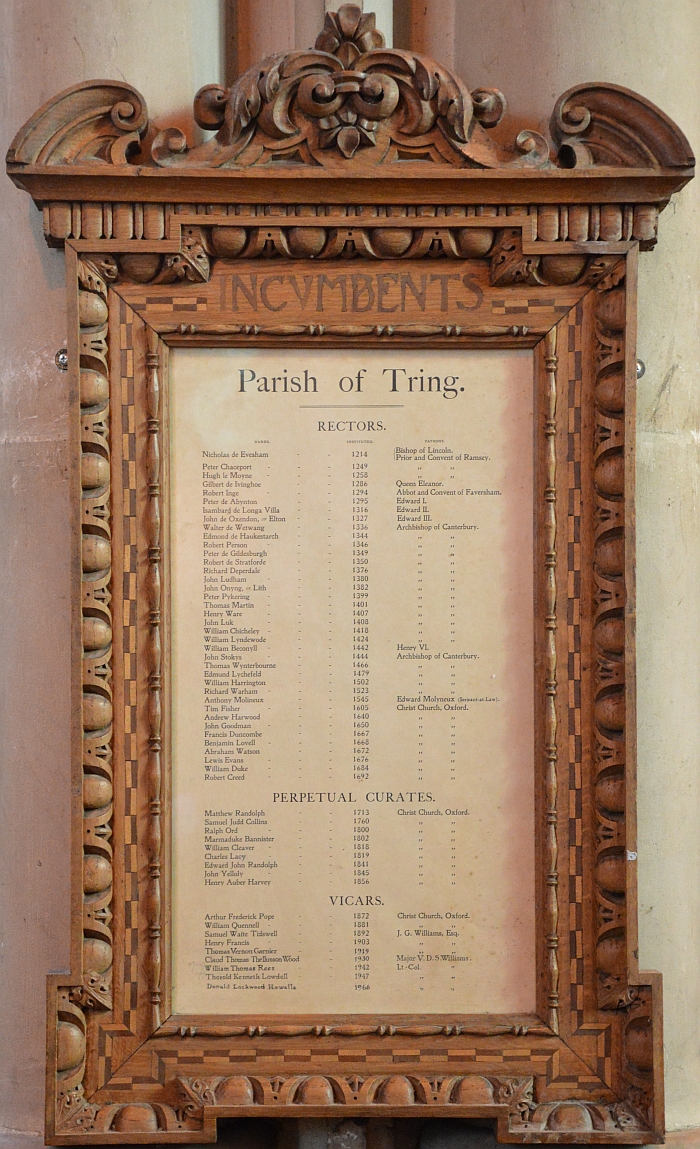 INCVMBENTS
Parish of Tring.
RECTORS.
NAMES. INSTITUTED. PATRONS.
Nicholas de Evesham - - 1214 Bishop of Lincoln. Prior and Convent of Ramsey.
Peter Chaceport - - 1249 „ „
Hugh le Moyne - - 1258 „ „
Gilbert de Ivinghoe - - 1286 Queen Eleanor.
Robert Inge - - 1294 Abbot and Convent of Faversham.
Peter de Abynton - - 1295 Edward I.
Isambard de Longa Villa - - 1316 Edward II.
John de Oxendon, or Elton - - 1327 Edward III.
Walter de Wetwang - - 1336 Archbishop of Canterbury.
Edmond de Haukestarch - - 1344 „ „
Robert Person - - 1346 „ „
Peter de Gildesburgh - - 1349 „ „
Robert de Stratforde - - 1350 „ „
Richard Deperdale - - 1376 „ „
John Ludham - - 1380 „ „
John Onyng, or Lith - - 1382 „ „
Peter Pykering - - 1399 „ „
Thomas Martin - - 1401 „ „
Henry Ware - - 1407 „ „
John Luk - - 1408 „ „
William Chicheley - - 1418 „ „
William Lyndewode - - 1424 „ „
William Beconyll - - 1442 Henry VI.
John Stokys - - 1444 Archbishop of Canterbury.
Thomas Wynterbourne - - 1466 „ „
Edmund Lychefeld - - 1479 „ „
William Harrington - - 1502 „ „
Richard Warham - - 1523 „ „
Anthony Molineux - - 1545 Edward Molyneux (Serjeant-at-Law).
Tim Fisher - - 1605 Christ Church, Oxford.
Andrew Harwood - - 1640 „ „
John Goodman - - 1650 „ „
Francis Duncombe - - 1667 „ „
Benjamin Lovell - - 1668 „ „
Abraham Watson - - 1672 „ „
Lewis Evans - - 1676 „ „
William Duke - - 1684 „ „
Robert Creed - - 1692 „ „
PERPETUAL CURATES.
Matthew Randolph - - 1713 Christ Church, Oxford.
Samuel Judd Collins - - 1760 „ „
Ralph Ord - - 1800 „ „
Marmaduke Bannister - - 1802 „ „
William Cleaver - - 1818 „ „
Charles Lacy - - 1819 „ „
Edward John Randolph - - 1841 „ „
John Yelloly - - 1845 „ „
Henry Auber Harvey - - 1856 „ „
VICARS.
Arthur Frederick Pope - - 1872 Christ Church, Oxford.
William Quennell - - 1881 „ „
Samuel Waite Tidswell - - 1892 J. G. Williams, Esq.
Henry Francis - - 1903 „ „
Thomas Vernon Garnier - - 1919 „ „
Claud Thomas Thellusson Wood - 1930 Major V. D. S. Williams.
William Thomas Rees - - 1942 Lt-Col. „ „
Thorold Kenneth Lowdell - - 1947 „ „
Donald Lockwood Howells - - 1966 „ „